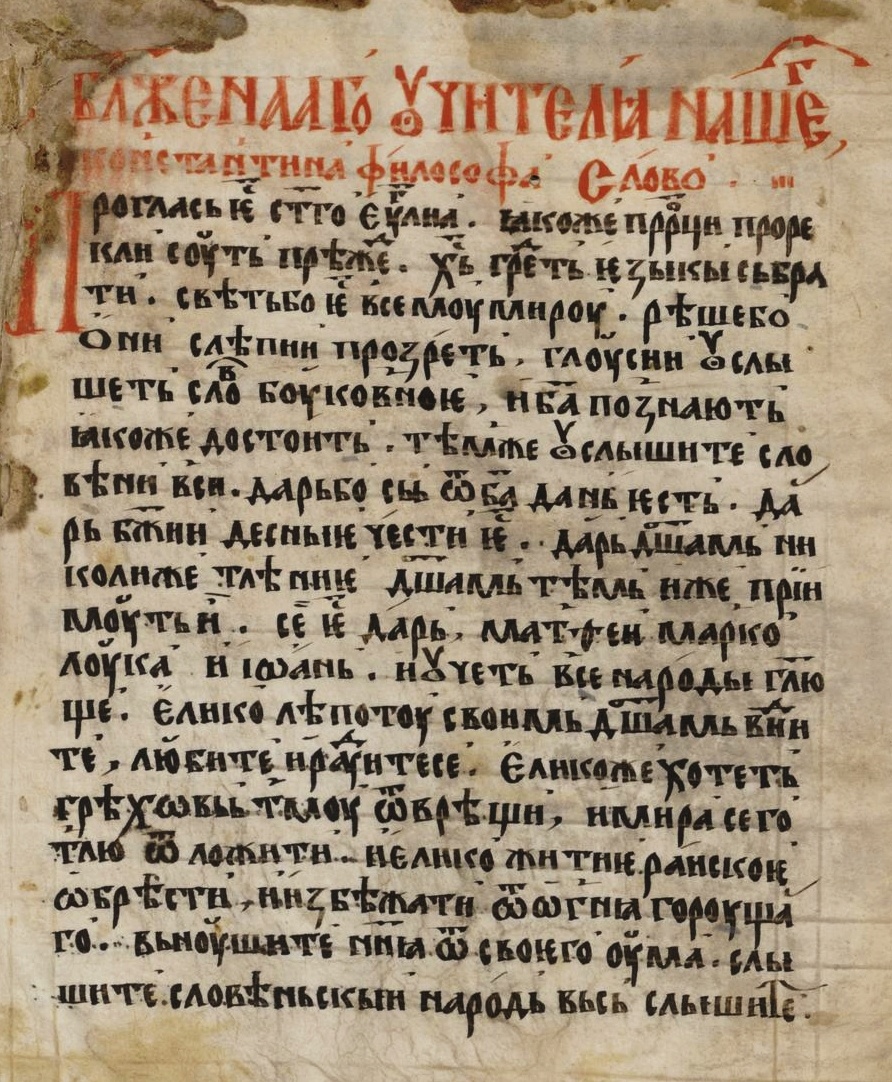 Блж҃енааго ᲂучителꙗ нашег҃,
константина философа Слово ·
Прогласъ ѥ҃ ст҃го еѵ҃лиа · ꙗкоже прⷪ҇рци проре
кли соуть прѣжⷣе · х҃ь гре́деть ѥзыкы сьбра
ти · свѣтьбо ѥ҃ всемоу мироу · рѣшебо
ѻни слѣпии прозреть, глоусии ꙋслы
шеть слоⷡ боуковноѥ, и б҃а познають
ꙗкоже достоить · тѣмже ꙋслышите сло
вѣни вси · дарьбо сьы ѿ б҃а дань ѥсть · да
рь б҃жии десныѥ чести ѥ҃ · дарь дш҃амь ни
колиже тлѣниѥ дш҃амь тѣмь иже прїи
моуть и · се ѥ҃ дарь, матѳеи марко
лоука и іѡань · и ꙋчеть все народы гл҃ю
ще · Елико лѣпотоу своимь дш҃амь виⷣи
те, любите и раⷣуитесе · Еликоже хотеть
грѣхѡвьы тмоу ѿврѣщи, и мира сего
тлю ѿложити · и елико житиѥ раискоѥ
ѡбрѣсти, и избѣжати ѿ ѡгнꙗ гороуща
го · вьноушите нн҃ꙗ ѿ своѥго оума · слы
шите словѣньскыи народь вьсь слышите ·